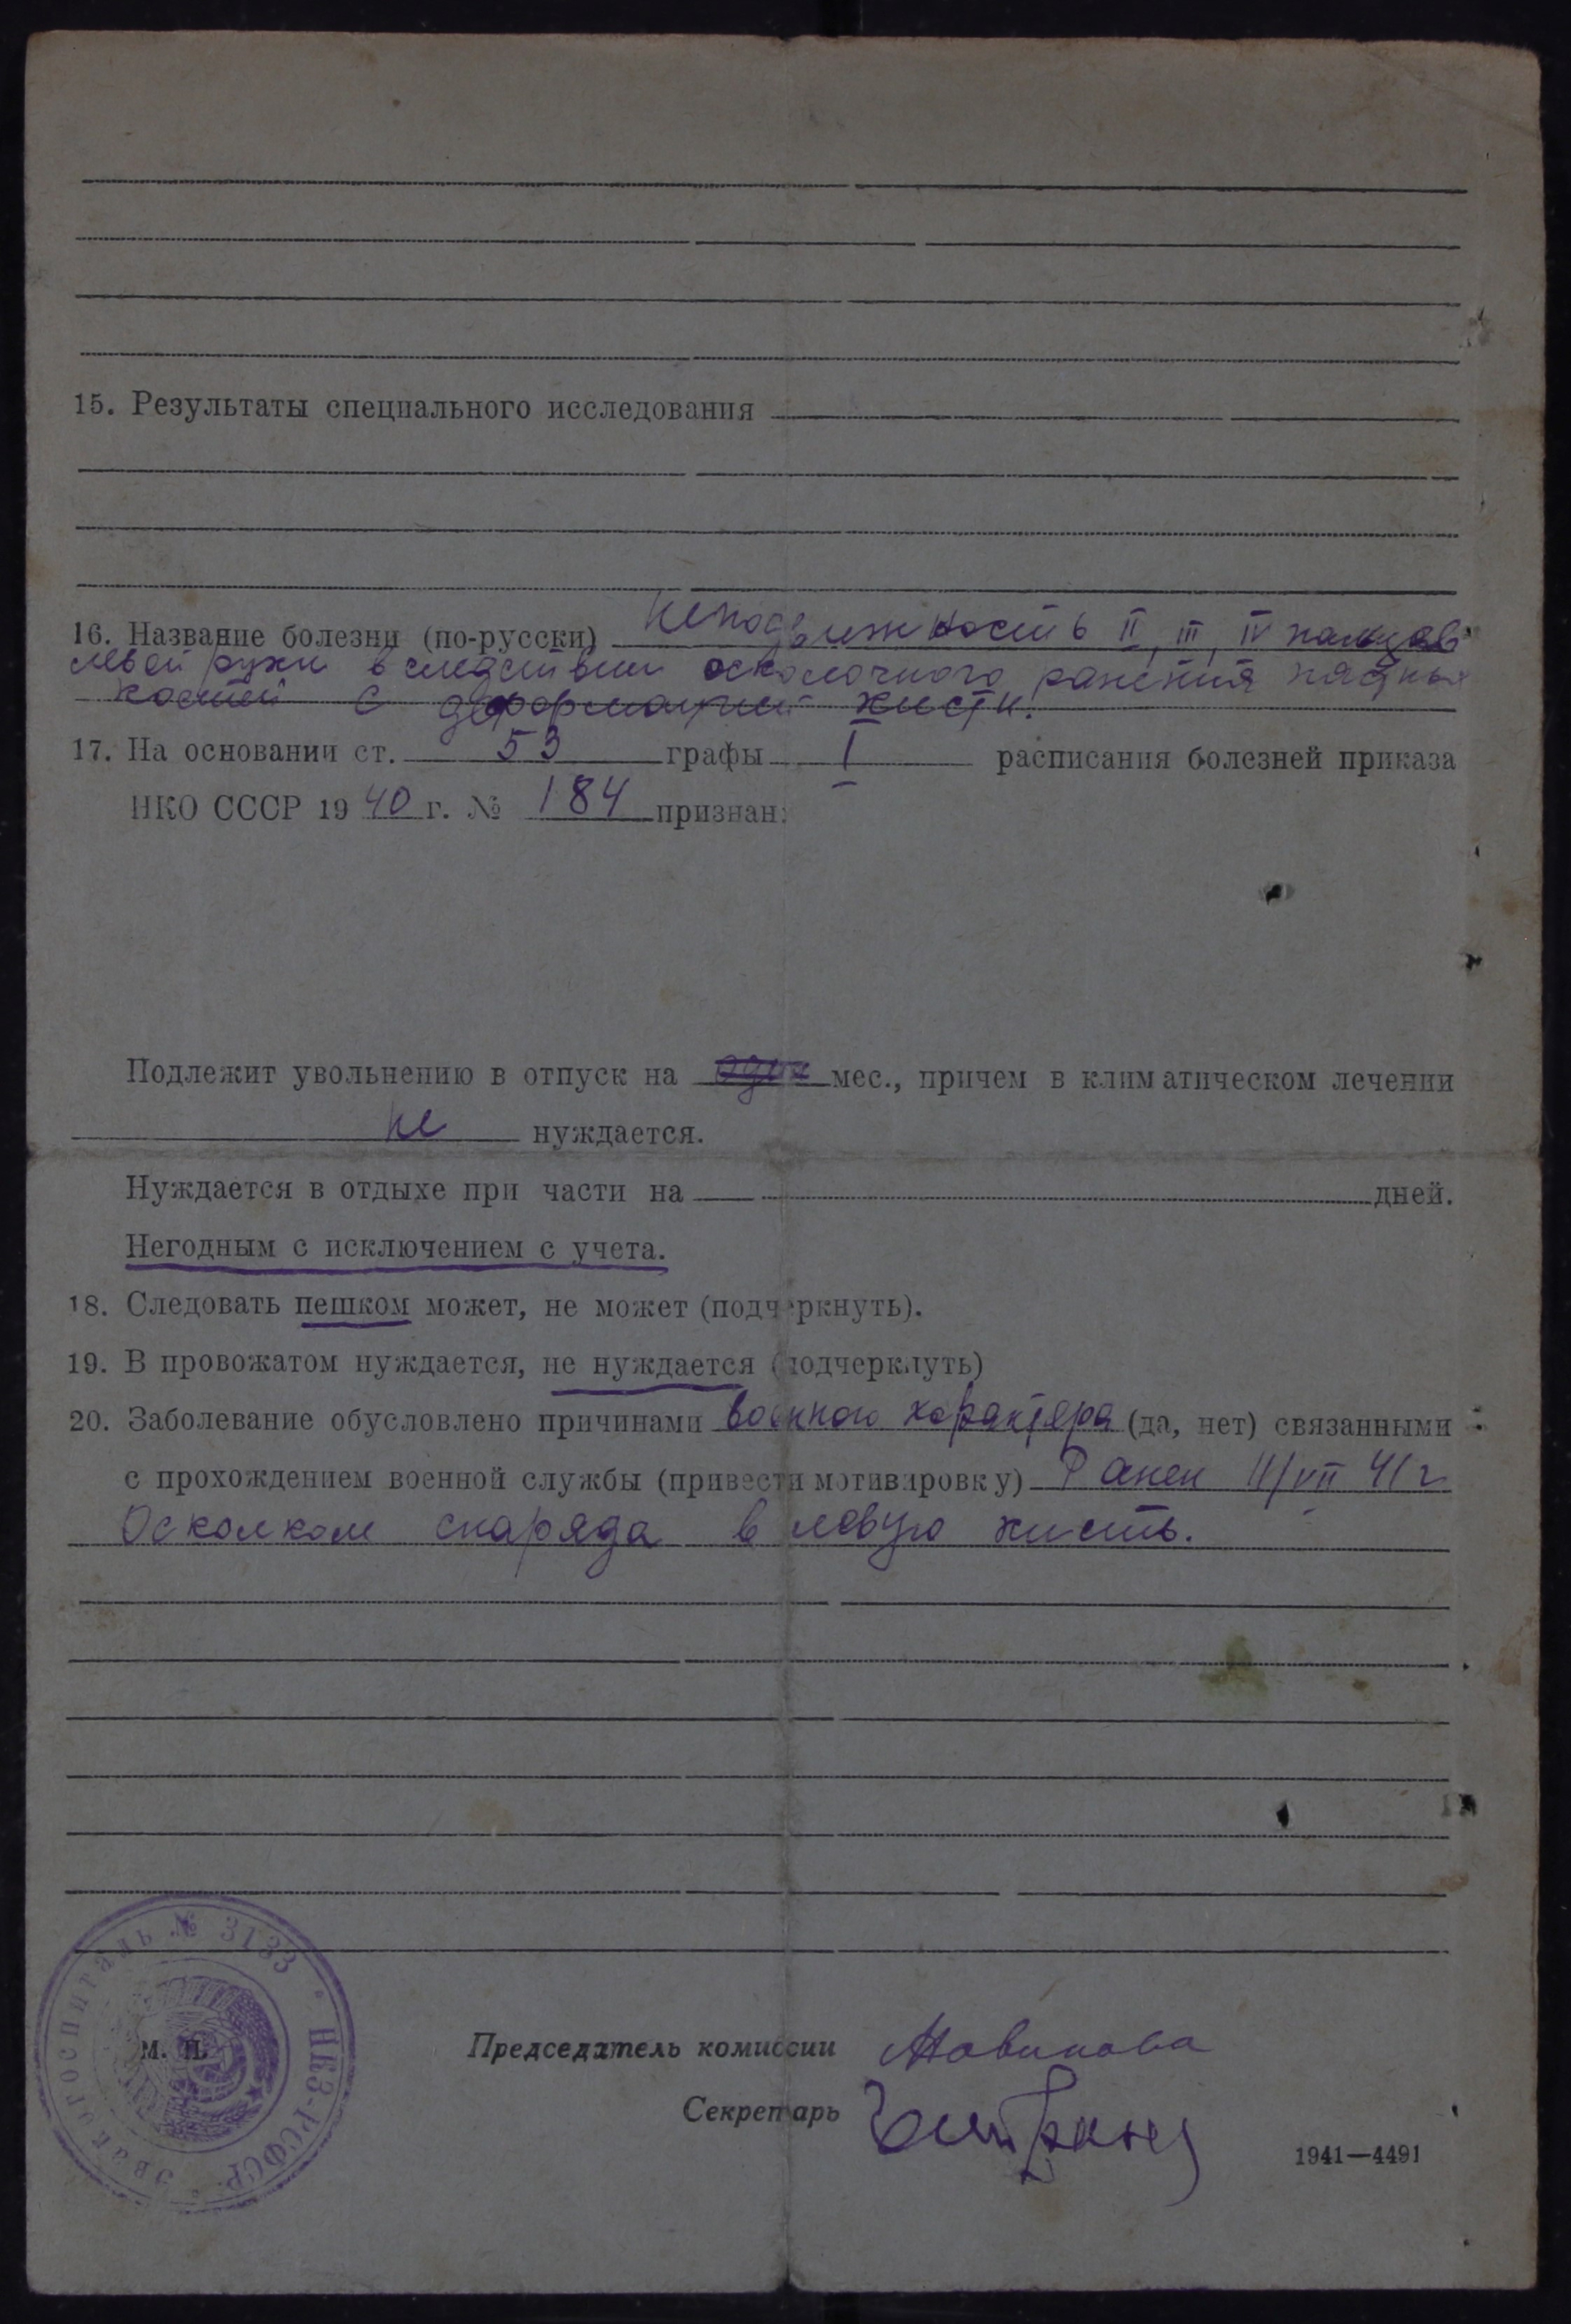 15. Результаты специального исследования
16. Название болезни (по-русски) Неподвижность II, III, IV пальцев
левой руки вследствии осколочного ранения пястных
костей с деформацией кисти.
17. На основании ст. 53 графы I расписания болезней приказа
НКО СССР 1940 г. № 184 признан:
Подлежит увольнению в отпуск на один мес., причем в климатическом лечении
не нуждается.
Нуждается в отдыхе при части на дней.
Негодным с исключением с учета.
18. Следовать пешком может, не может (подчеркнуть).
19. В провожатом нуждается, не нуждается (подчеркнуть)
20. Заболевание обусловлено причинами военного характера (да, нет) связанными
с прохождением военной службы (привести мотивировку) Ранен 11/VII 41 г
Осколком снаряда в левую кисть.
Эвакогоспиталь № 3133 • НКЗ-РСФСР •
М. П.
Председатель комиссии Новикова
Секретарь
1941—4491